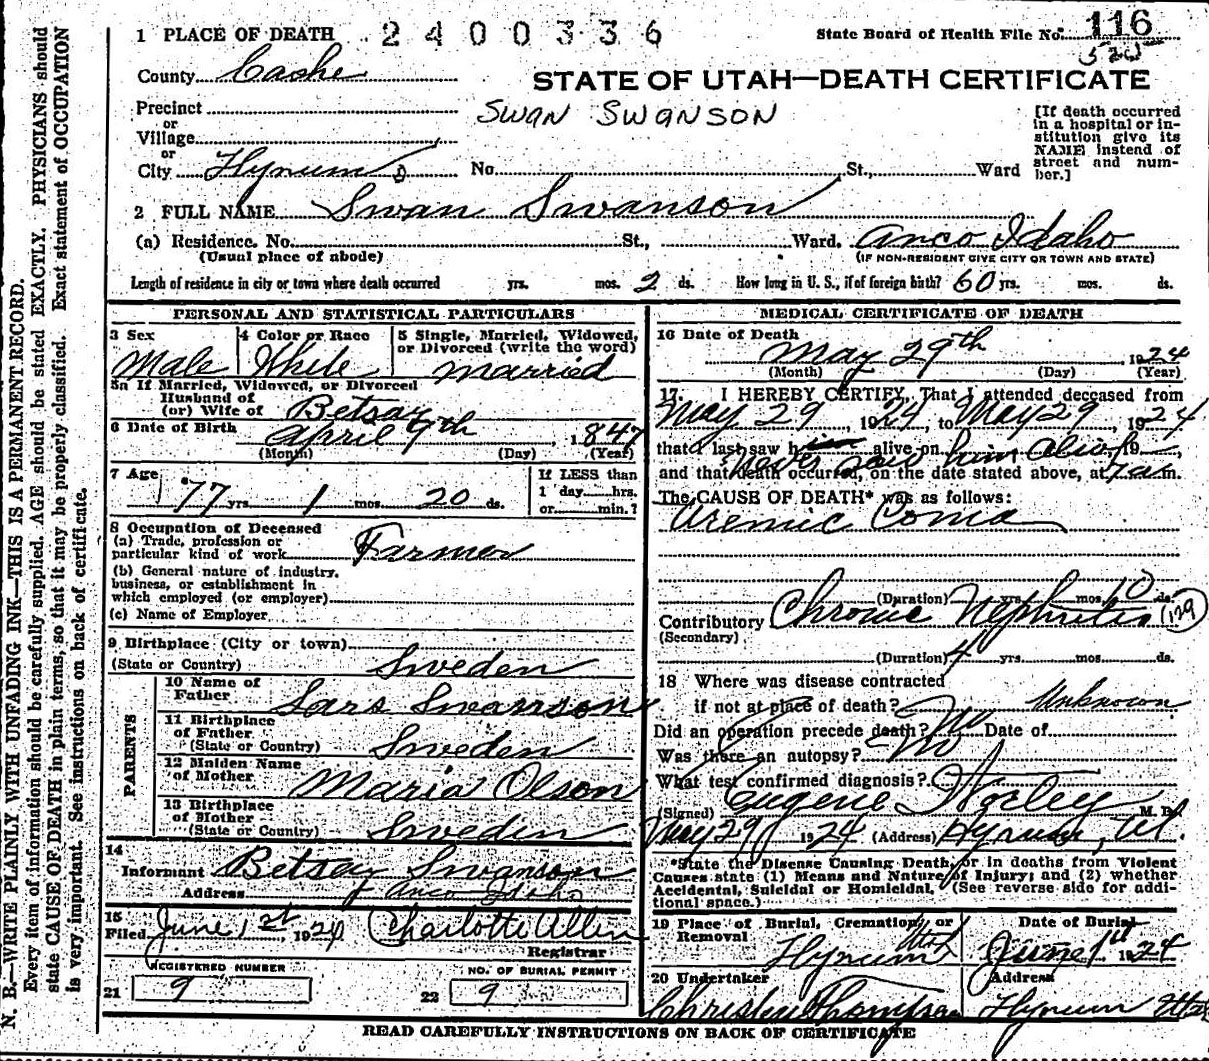 1 PLACE OF DEATH 2400336 State Board of Health File No. 116
525
County Cache
STATE OF UTAH—DEATH CERTIFICATE
Precinct
SWAN SWANSON
or
Village
or
City Hyrum No. St., Ward
[If death occurred
in a hospital or in-
stitution give its
NAME instead of
street and num-
ber.]
2 FULL NAME Swan Swanson
(a) Residence. No. St., Ward. Anco Idaho
(Usual place of abode) (IF NON-RESIDENT GIVE CITY OR TOWN AND STATE)
Length of residence in city or town where death occurred yrs. mos. 2 ds. How long in U. S., if of foreign birth? 60 yrs. mos. ds.
PERSONAL AND STATISTICAL PARTICULARS
3 Sex
Male
4 Color or Race
White
5 Single, Married, Widowed,
or Divorced (write the word)
married
5a If Married, Widowed, or Divorced
Husband of
(or) Wife of Betsay
6 Date of Birth April 7th, 1847
(Month) (Day) (Year)
7 Age
77 yrs. 1 mos. 20 ds.
If LESS than
1 day hrs.
or min.?
8 Occupation of Deceased
(a) Trade, profession or
particular kind of work Farmer
(b) General nature of industry,
business, or establishment in
which employed (or employer)
(c) Name of Employer
9 Birthplace (City or town)
(State or Country) Sweden
PARENTS
10 Name of
Father Lars Swanson
11 Birthplace
of Father
(State or Country) Sweden
12 Maiden Name
of Mother Maria Olson
13 Birthplace
of Mother
(State or Country) Sweden
14
Informant Betsay Swanson
Address Anco Idaho
15
Filed June 1st, 1924 Charlotte Allen
Registrar
REGISTERED NUMBER
21 9
NO. OF BURIAL PERMIT
22 9
MEDICAL CERTIFICATE OF DEATH
16 Date of Death
May 29th, 1924
(Month) (Day) (Year)
17. I HEREBY CERTIFY, That I attended deceased from
May 29, 1924, to May 29, 1924
that I last saw him alive on 19
never saw him alive
and that death occurred, on the date stated above, at 7 a m.
The CAUSE OF DEATH* was as follows:
Uremic Coma
(Duration) yrs. mos. 10 ds.
Contributory Chronic Nephritis (129)
(Secondary)
(Duration) 4 yrs. mos. ds.
18 Where was disease contracted
if not at place of death? Unknown
Did an operation precede death? No Date of
Was there an autopsy? No
What test confirmed diagnosis?
(Signed) Eugene Worley M. D.
May 29, 1924 (Address) Hyrum, Ut.
*State the Disease Causing Death, or in deaths from Violent
Causes state (1) Means and Nature of Injury; and (2) whether
Accidental, Suicidal or Homicidal. (See reverse side for addi-
tional space.)
19 Place of Burial, Cremation, or
Removal
Hyrum Utah
Date of Burial
June 1st 1924
20 Undertaker
Address
Hyrum Utah
READ CAREFULLY INSTRUCTIONS ON BACK OF CERTIFICATE
N. B.—WRITE PLAINLY WITH UNFADING INK—THIS IS A PERMANENT RECORD.
Every item of information should be carefully supplied. AGE should be stated EXACTLY. PHYSICIANS should
state CAUSE OF DEATH in plain terms, so that it may be properly classified. Exact statement of OCCUPATION
is very important. See instructions on back of certificate.